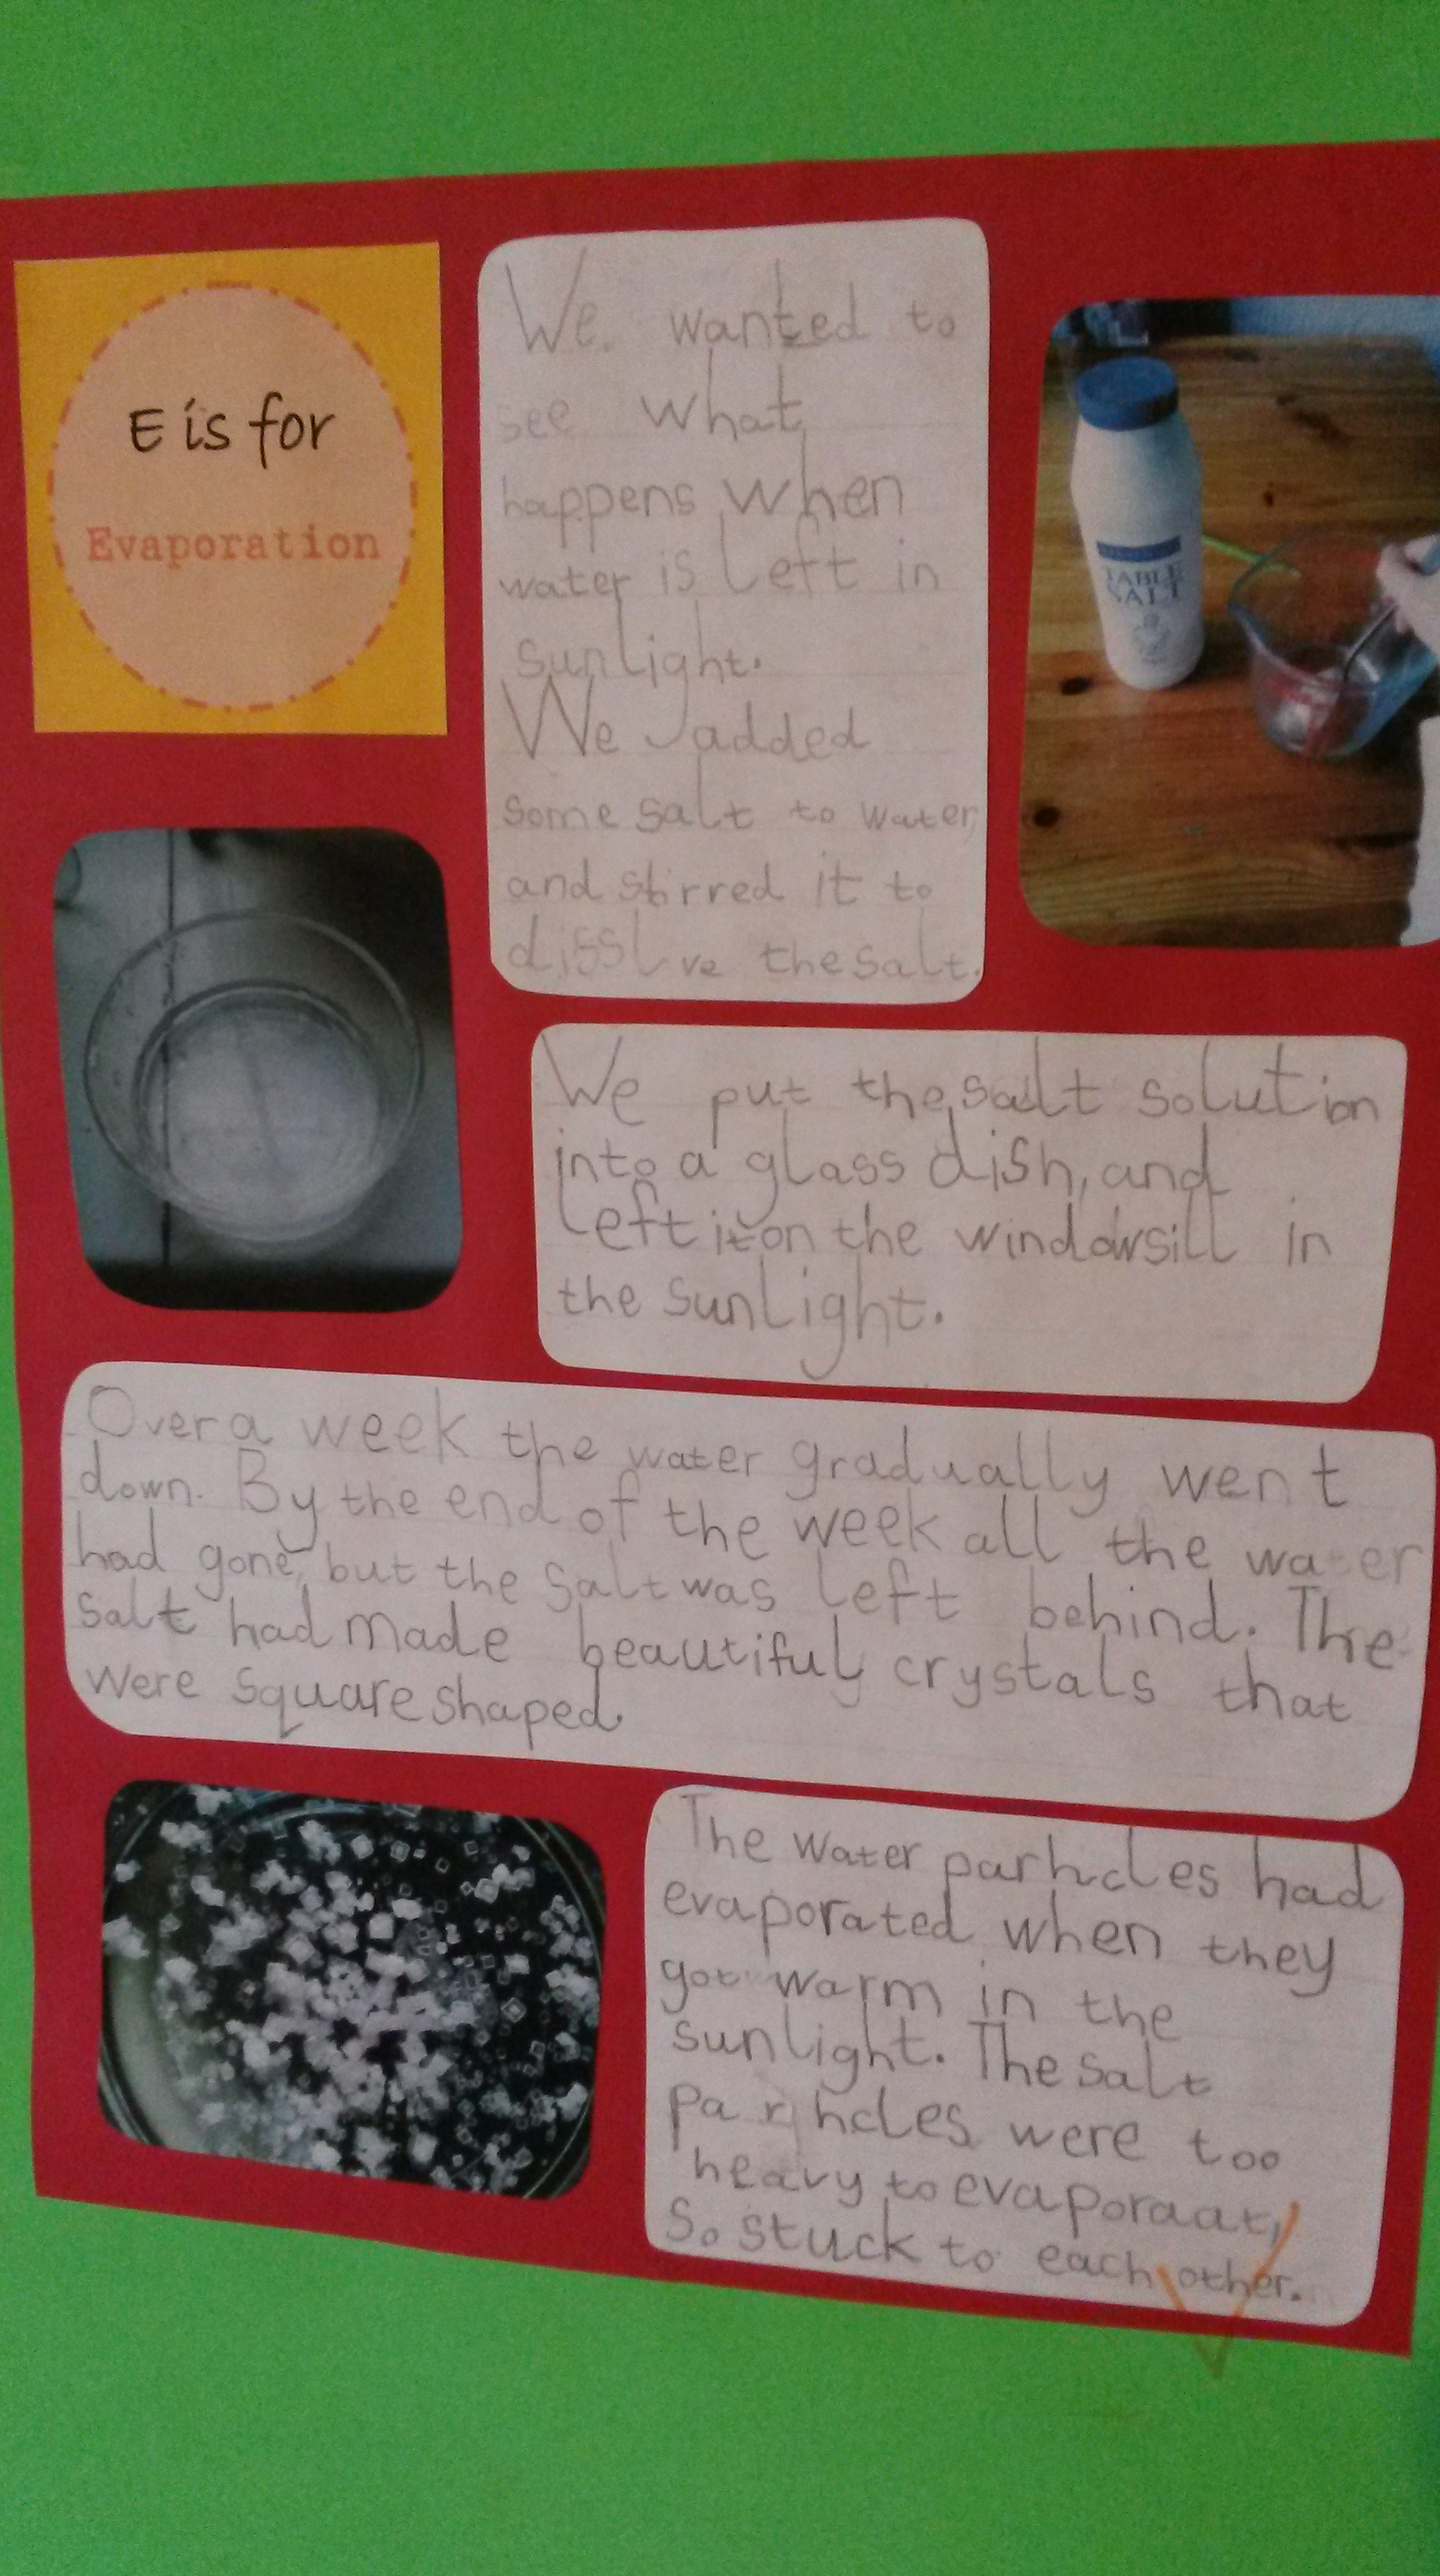 E is for
Evaporation
We wanted to
see what
happens when
water is left in
sunlight.
We added
some salt to water,
and stirred it to
disslve the salt.
TABLE
SALT
We put the salt solution
into a glass dish, and
left it on the windowsill in
the sunlight.
Over a week the water gradually went
down. By the end of the week all the water
had gone, but the salt was left behind. The
salt had made beautiful crystals that
were square shaped.
The water particles had
evaporated when they
got warm in the
sunlight. The salt
particles were too
heavy to evaporaat,
so stuck to each other.